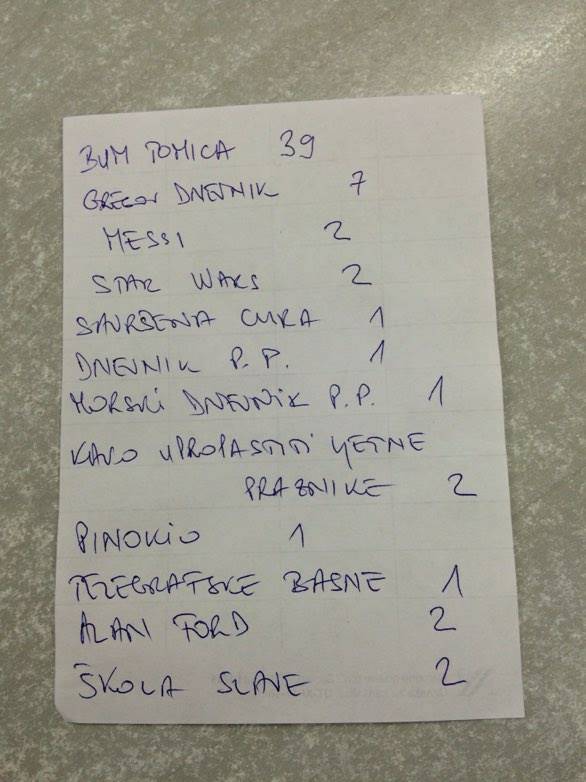 BUM TOMICA 39
GREGOV DNEVNIK 7
MESSI 2
STAR WARS 2
SAVRŠENA CURA 1
DNEVNIK P. P. 1
MORSKI DNEVNIK P.P. 1
KAKO UPROPASTITI LJETNE
PRAZNIKE 2
PINOKIO 1
TELEGRAFSKE BASNE 1
ALAN FORD 2
ŠKOLA SLAVE 2